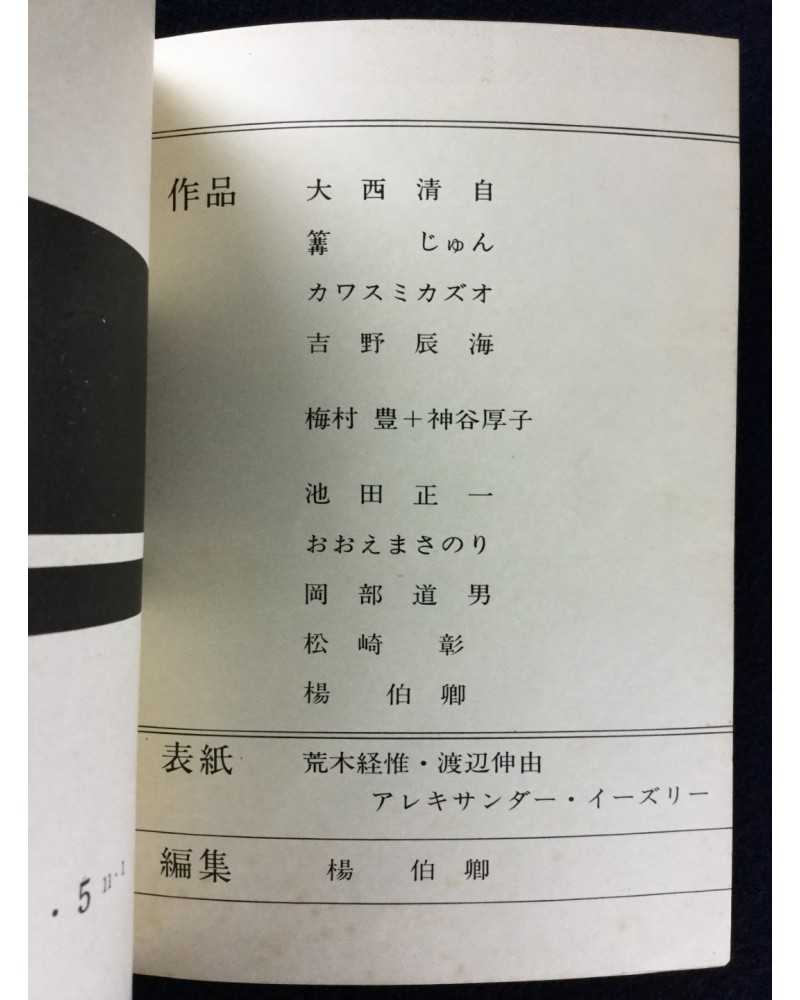 作品 大西清自
篝 じゅん
カワスミカズオ
吉野辰海
梅村 豊+神谷厚子
池田正一
おおえまさのり
岡部道男
松崎 彰
楊 伯卿
表紙 荒木経惟・渡辺伸由
アレキサンダー・イーズリー
編集 楊 伯卿
・5 11・1